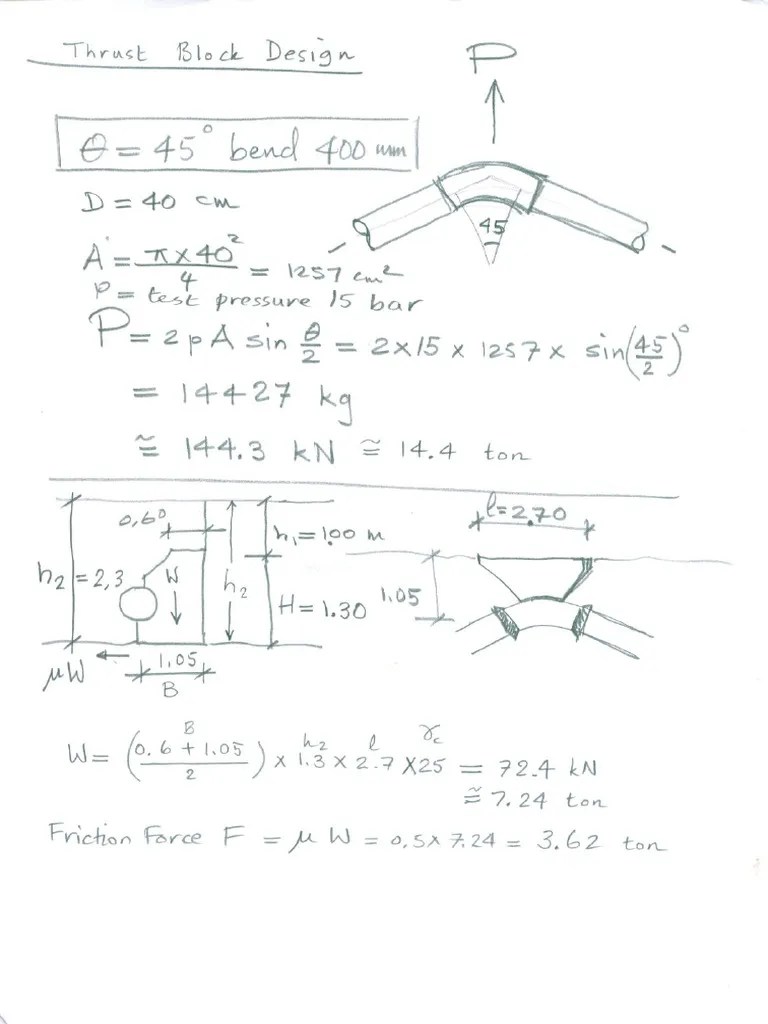 Thrust Block Design
P
θ = 45° bend 400 mm
D = 40 cm
45
A = π×40²/4 = 1257 cm²
p = test pressure 15 bar
P = 2 p A sin θ/2 = 2×15 × 1257 × sin(45/2)°
= 14427 kg
≅ 144.3 kN ≅ 14.4 ton
0,60
h₁ = 1.00 m
l = 2.70
h₂ = 2,3
W
h₂
H = 1.30
1.05
μW
1,05
B
B
h₂ l γc
W = (0.6 + 1.05 / 2) × 1.3 × 2.7 × 25 = 72.4 kN
≅ 7.24 ton
Friction Force F = μ W = 0,5 × 7.24 = 3.62 ton